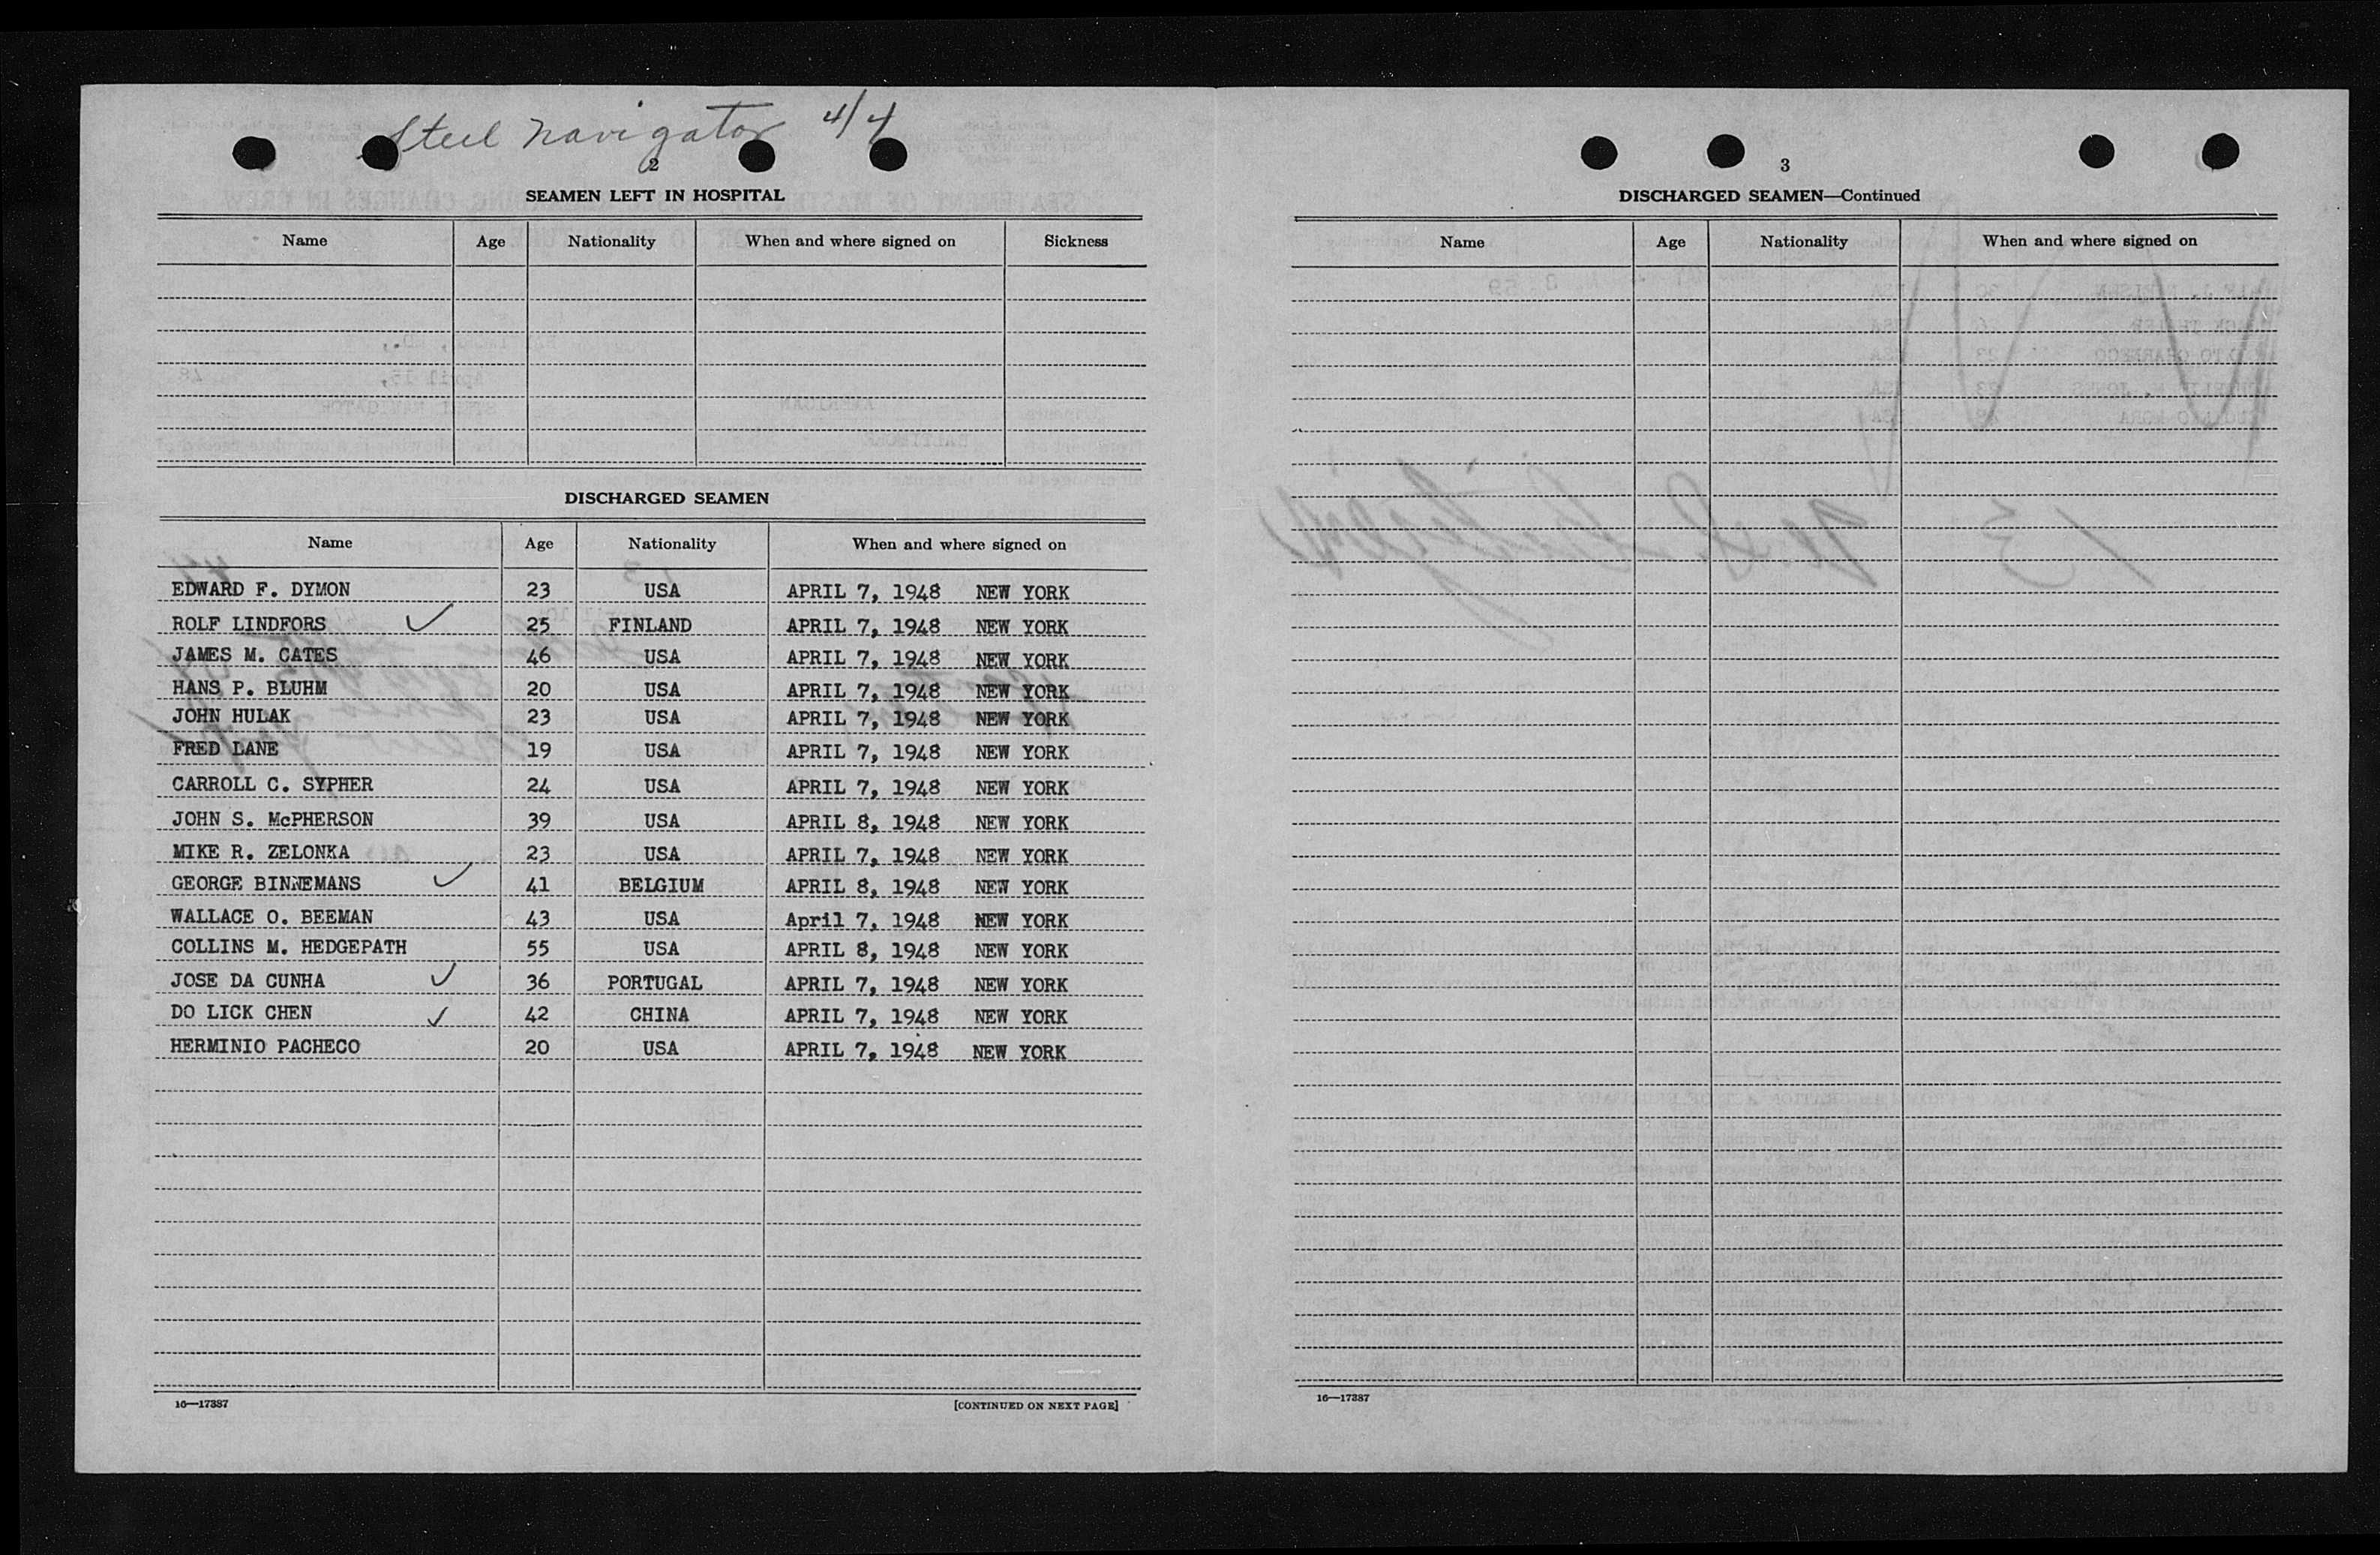 Steel Navigator 4/4
2
SEAMEN LEFT IN HOSPITAL
Name Age Nationality When and where signed on Sickness
DISCHARGED SEAMEN
Name Age Nationality When and where signed on
EDWARD F. DYMON 23 USA APRIL 7, 1948 NEW YORK
ROLF LINDFORS ✓ 25 FINLAND APRIL 7, 1948 NEW YORK
JAMES M. CATES 46 USA APRIL 7, 1948 NEW YORK
HANS P. BLUHM 20 USA APRIL 7, 1948 NEW YORK
JOHN HULAK 23 USA APRIL 7, 1948 NEW YORK
FRED LANE 19 USA APRIL 7, 1948 NEW YORK
CARROLL C. SYPHER 24 USA APRIL 7, 1948 NEW YORK
JOHN S. McPHERSON 39 USA APRIL 8, 1948 NEW YORK
MIKE R. ZELONKA 23 USA APRIL 7, 1948 NEW YORK
GEORGE BINNEMANS ✓ 41 BELGIUM APRIL 8, 1948 NEW YORK
WALLACE O. BEEMAN 43 USA April 7, 1948 NEW YORK
COLLINS M. HEDGEPATH 55 USA APRIL 8, 1948 NEW YORK
JOSE DA CUNHA ✓ 36 PORTUGAL APRIL 7, 1948 NEW YORK
DO LICK CHEN ✓ 42 CHINA APRIL 7, 1948 NEW YORK
HERMINIO PACHECO 20 USA APRIL 7, 1948 NEW YORK
16—17387 [CONTINUED ON NEXT PAGE]
3
DISCHARGED SEAMEN—Continued
Name Age Nationality When and where signed on
16—17387